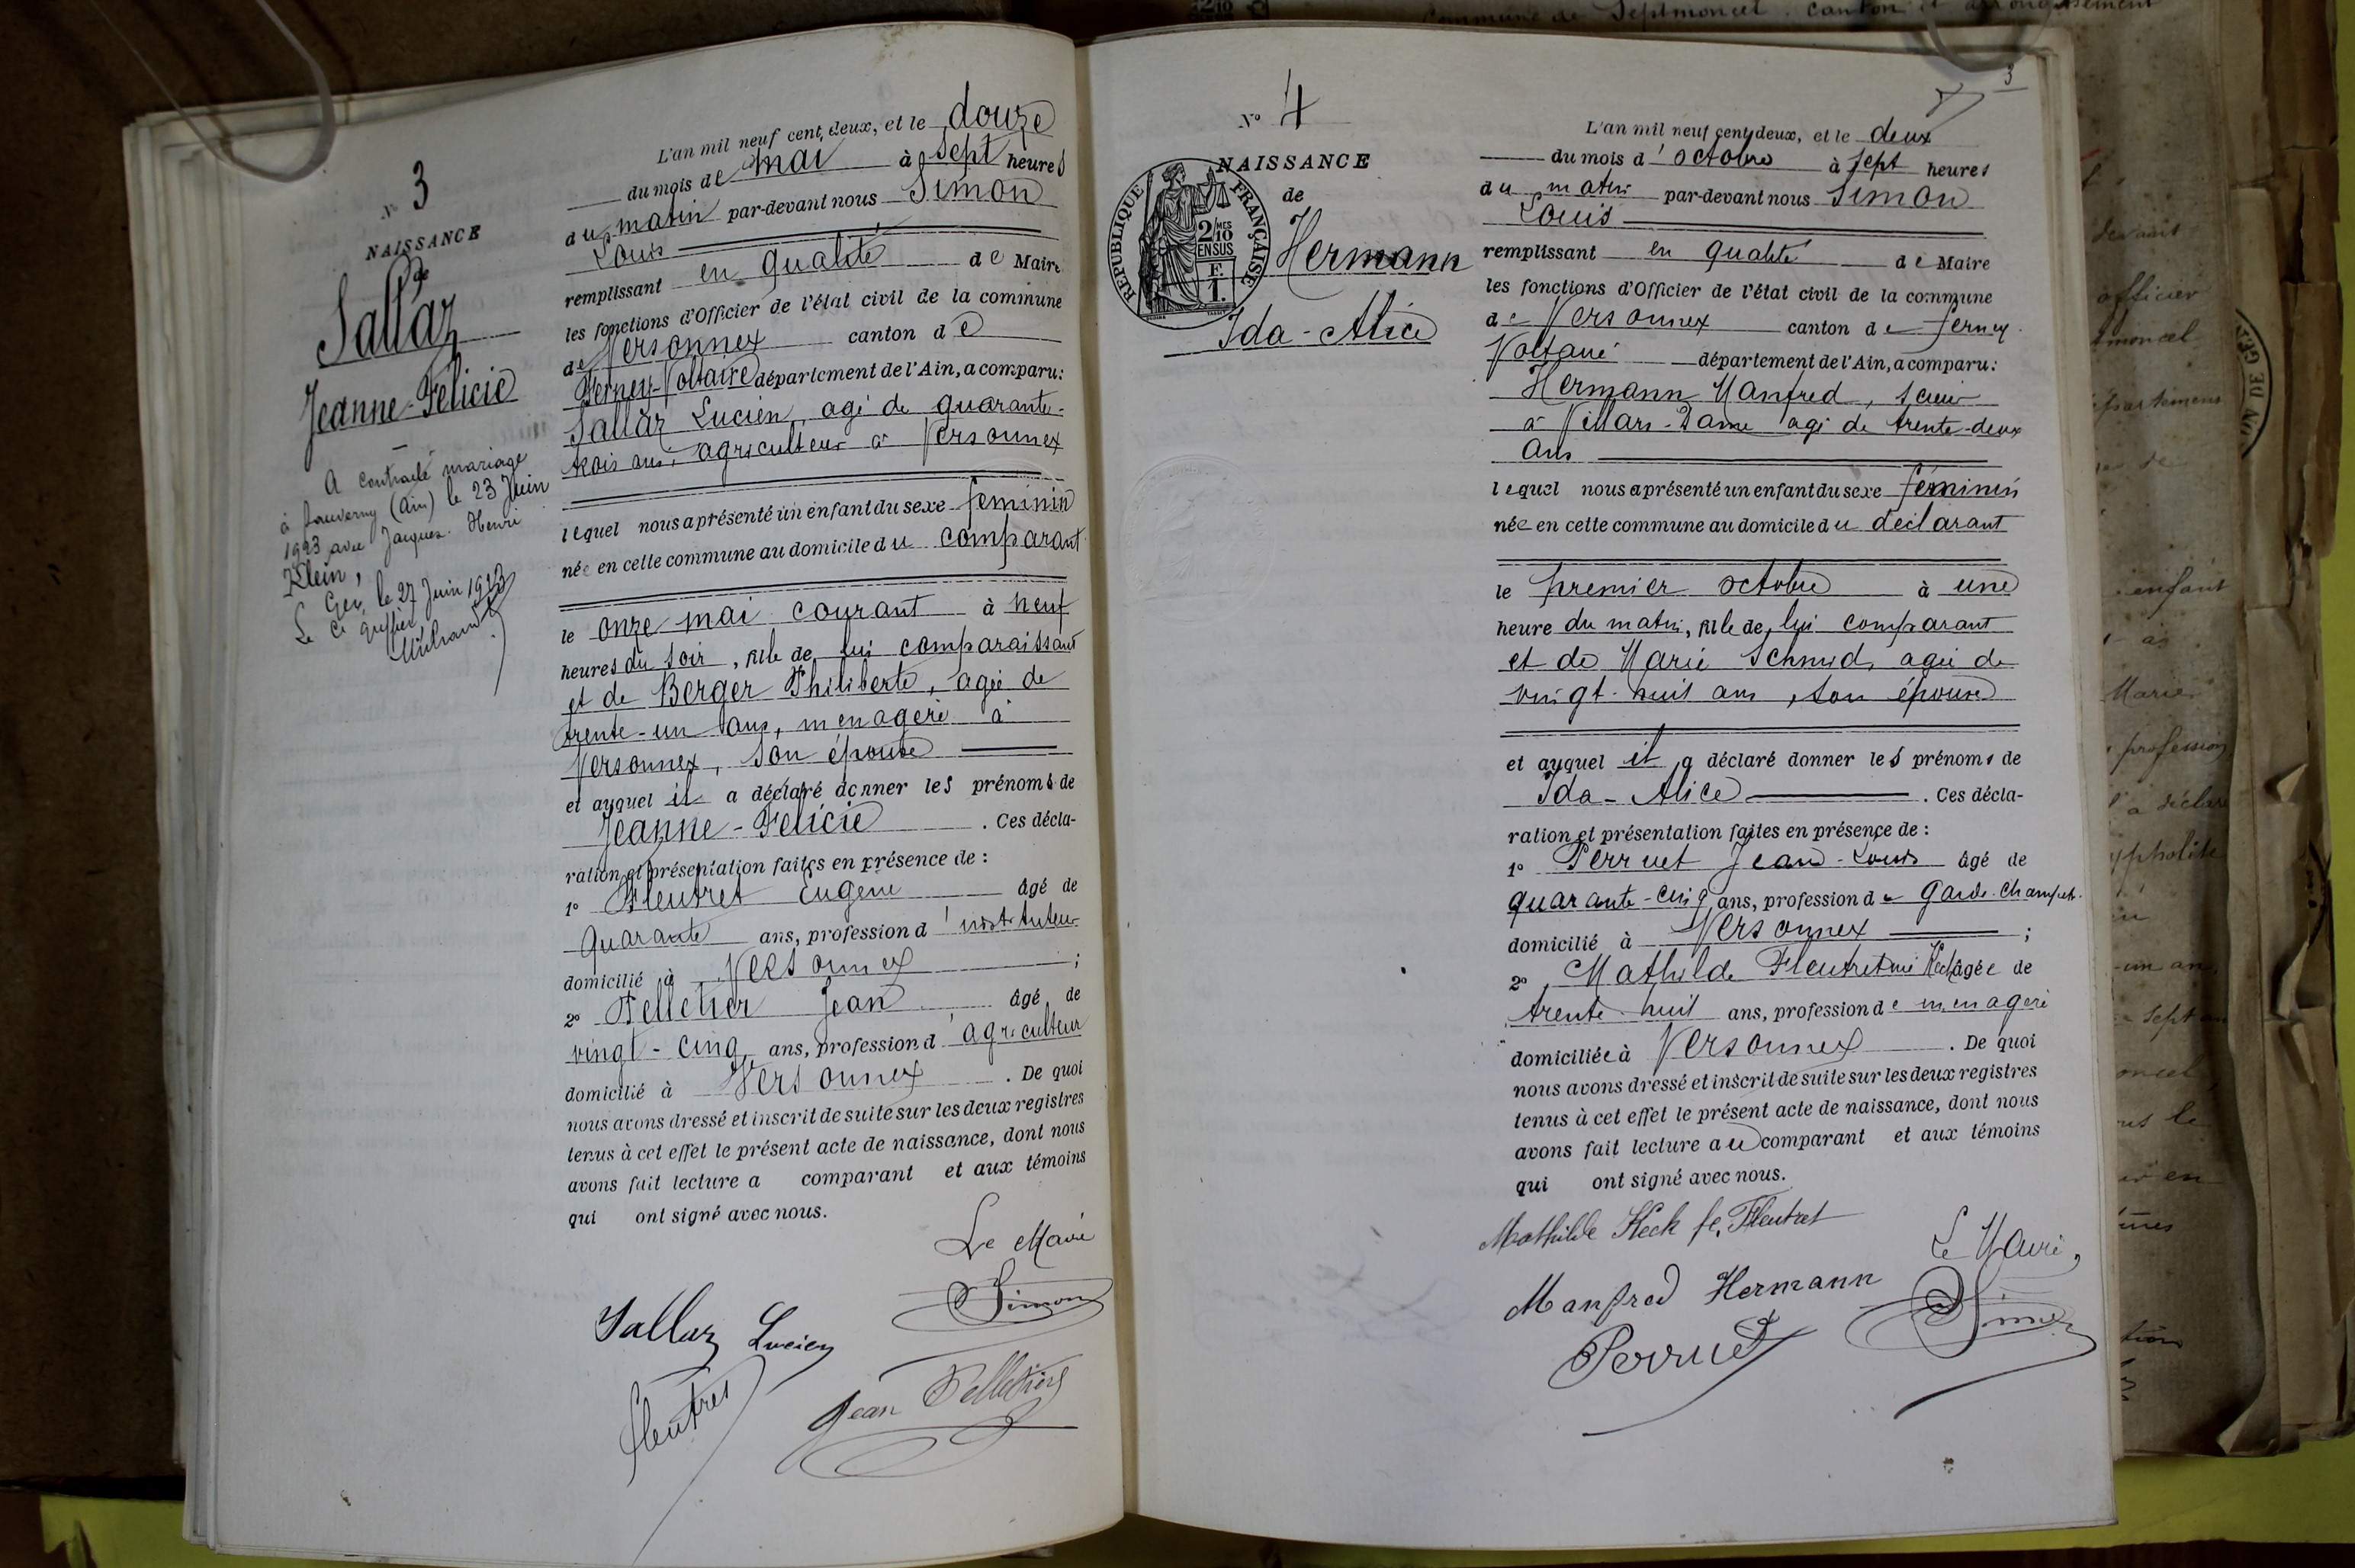 N° 3
NAISSANCE
de
Sallaz
Jeanne-Félicie
A contracté mariage
à Sauverny (Ain) le 23 Juin
1923 avec Jacques Henri
Klein,
Gex, le 27 Juin 1923
Le Greffier,
L'an mil neuf cent deux, et le douze
du mois de mai à sept heures
du matin par-devant nous Simon
Louis
remplissant en qualité de Maire
les fonctions d'Officier de l'état civil de la commune
de Versonnex canton de
Ferney-Voltaire département de l'Ain, a comparu:
Sallaz Lucien, agé de quarante-
trois ans, agriculteur à Versonnex
lequel nous a présenté un enfant du sexe féminin
née en cette commune au domicile du comparant
le onze mai courant à neuf
heures du soir, fille de lui comparaissant
et de Berger Philiberte, agée de
trente-un ans, menagère à
Versonnex, son épouse
et auquel il a déclaré donner les prénoms de
Jeanne-Félicie. Ces décla-
ration et présentation faites en présence de :
1° Fleutret Eugène âgé de
quarante ans, profession d'instituteur
domicilié à Versonnex ;
2° Pelletier Jean âgé de
vingt-cinq ans, profession d'agriculteur
domicilié à Versonnex. De quoi
nous avons dressé et inscrit de suite sur les deux registres
tenus à cet effet le présent acte de naissance, dont nous
avons fait lecture a comparant et aux témoins
qui ont signé avec nous.
Le Maire
Simon
Sallaz Lucien
fleutret
Jean Pelletier
3
N° 4
NAISSANCE
de
Hermann
Ida-Alice
REPUBLIQUE FRANÇAISE
2/10 MES
EN SUS
F.
1.
L'an mil neuf cent deux, et le deux
du mois d'octobre à sept heures
du matin par-devant nous Simon
Louis
remplissant en qualité de Maire
les fonctions d'Officier de l'état civil de la commune
de Versonnex canton de Ferney
Voltaire département de l'Ain, a comparu:
Hermann Manfred, scieur
à Villars-Dame agé de trente-deux
ans
lequel nous a présenté un enfant du sexe féminin
née en cette commune au domicile du déclarant
le premier octobre à une
heure du matin, fille de lui comparant
et de Marie Schmid, agée de
vingt-huit ans, son épouse
et auquel il a déclaré donner les prénoms de
Ida-Alice. Ces décla-
ration et présentation faites en présence de :
1° Perruet Jean-Louis âgé de
quarante-cinq ans, profession de garde-champêt.
domicilié à Versonnex ;
2° Mathilde Fleutret née Keck âgée de
trente huit ans, profession de menagère
domiciliée à Versonnex. De quoi
nous avons dressé et inscrit de suite sur les deux registres
tenus à cet effet le présent acte de naissance, dont nous
avons fait lecture au comparant et aux témoins
qui ont signé avec nous.
Mathilde Keck fe. Fleutret
Le Maire,
Manfred Hermann
Simon
Perruet